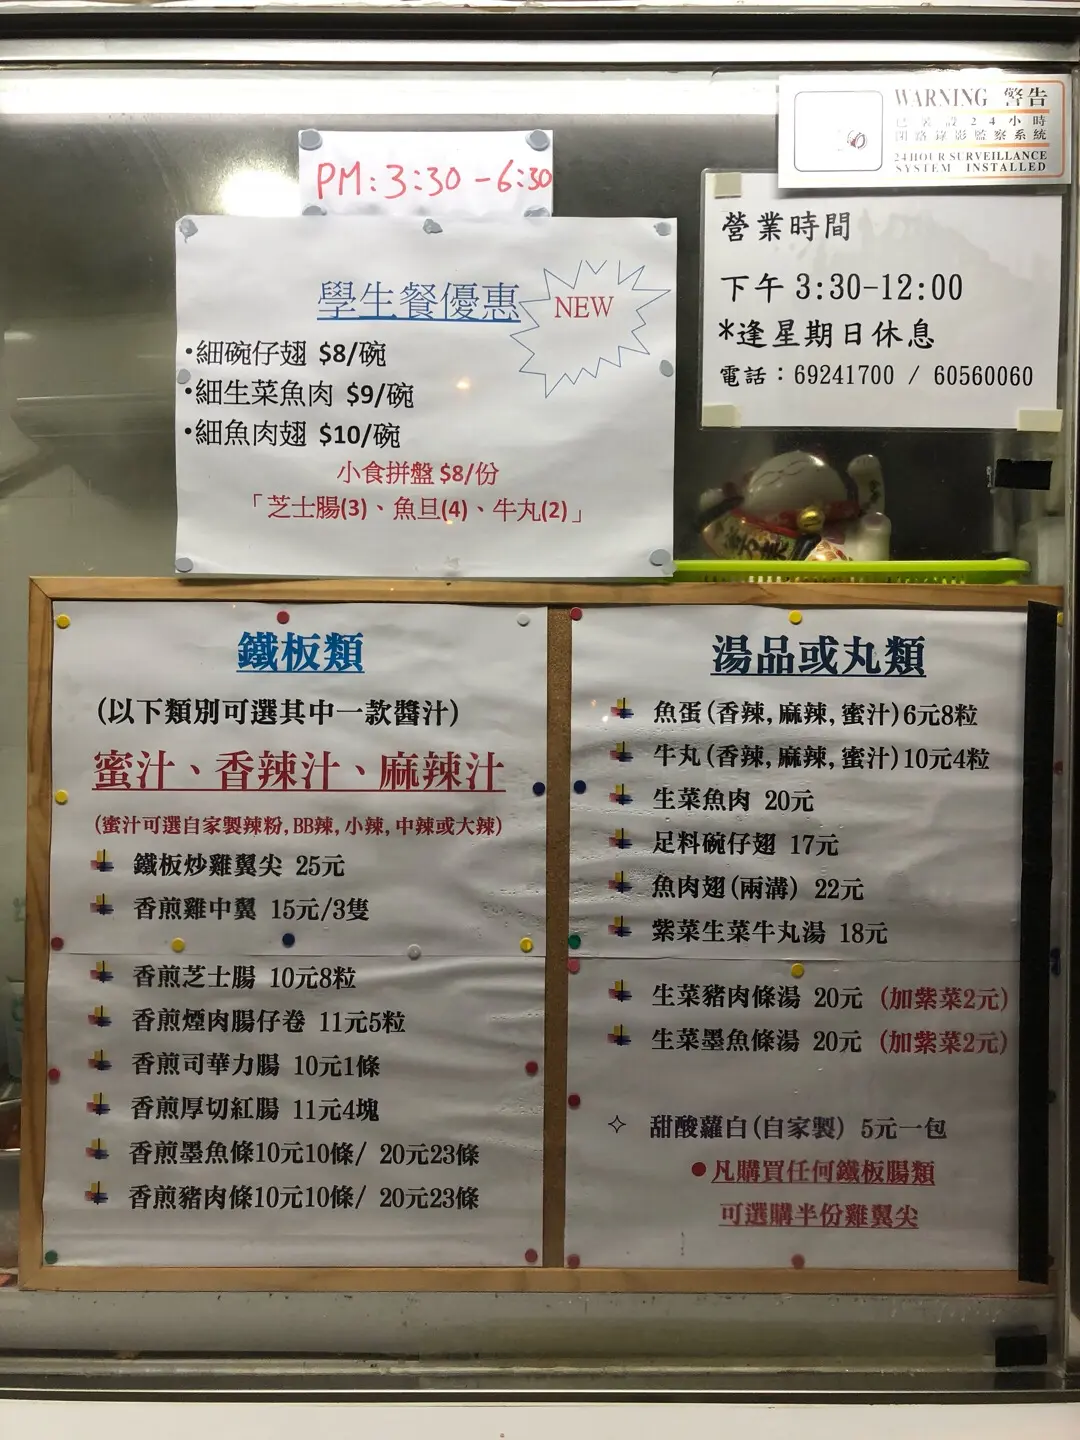 PM: 3:30 - 6:30
學生餐優惠
NEW
•細碗仔翅 $8/碗
•細生菜魚肉 $9/碗
•細魚肉翅 $10/碗
小食拼盤 $8/份
「芝士腸(3)、魚旦(4)、牛丸(2)」
WARNING 警告
已裝設24小時
閉路錄影監察系統
24 HOUR SURVEILLANCE
SYSTEM INSTALLED
營業時間
下午 3:30-12:00
*逢星期日休息
電話：69241700 / 60560060
鐵板類
(以下類別可選其中一款醬汁)
蜜汁、香辣汁、麻辣汁
(蜜汁可選自家製辣粉, BB辣, 小辣, 中辣或大辣)
鐵板炒雞翼尖 25元
香煎雞中翼 15元/3隻
香煎芝士腸 10元8粒
香煎煙肉腸仔卷 11元5粒
香煎司華力腸 10元1條
香煎厚切紅腸 11元4塊
香煎墨魚條10元10條/ 20元23條
香煎豬肉條10元10條/ 20元23條
湯品或丸類
魚蛋(香辣, 麻辣, 蜜汁)6元8粒
牛丸(香辣, 麻辣, 蜜汁)10元4粒
生菜魚肉 20元
足料碗仔翅 17元
魚肉翅(兩溝) 22元
紫菜生菜牛丸湯 18元
生菜豬肉條湯 20元 (加紫菜2元)
生菜墨魚條湯 20元 (加紫菜2元)
✧ 甜酸蘿白(自家製) 5元一包
●凡購買任何鐵板腸類
可選購半份雞翼尖